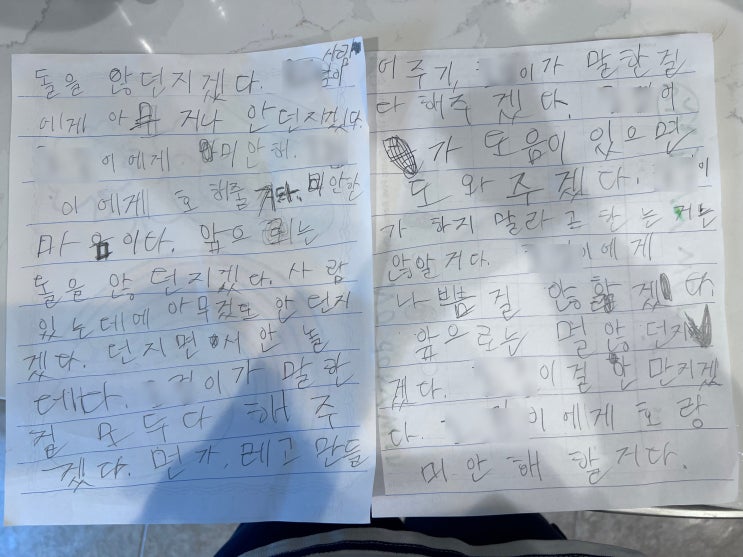 돌을 않던지겠다. 사람
에게 아 거나 안던지겠다.
이에게 미안해.
이에게 호 해줄 거다. 미안한
마음이다. 앞으로는
돌을 않던지겠다. 사람
있는데에 아무것도 안 던지
겠다. 던지면서 안 놀
테다. 이가 말한
걸 모두 다 해 주
겠다. 먼가, 레고 만들
어 주기, 이가 말한걸
다 해주겠다. 이
가 도움이 있으면
도와주겠다. 이
가 하지 말라고 한는 거는
않알거다. 이에게
나쁨 질 않할겠다.
앞으로는 멀 않던지
겠다. 이걸 안 만지겠
다. 이에게 호랑
미안해 할거다.